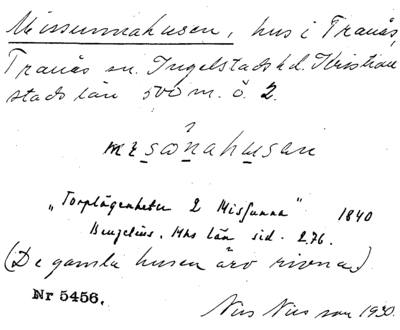 Missunnahusen, hus i Tranås,
Tranås sn. Ingelstads hd. Kristian
stads län 500 m. ö. 2.
"Torplägenheten 2 Missunna" 1840
Bexelius. Mhs län sid. 276.
(De gamla husen äro rivna)
Nr 5456.
Nils Nilsson 1930.